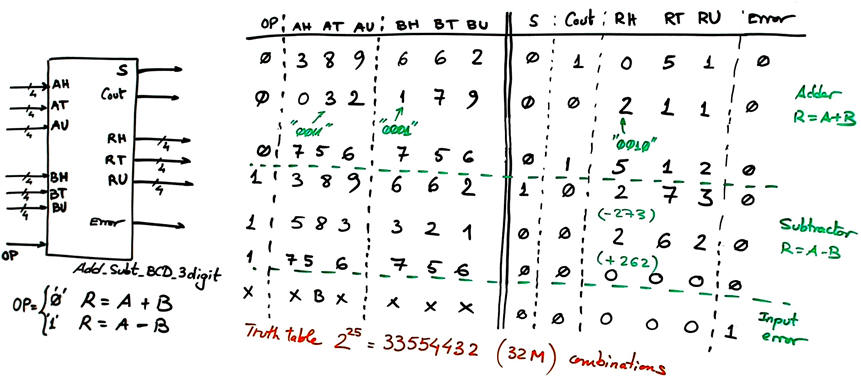 OP AH AT AU BH BT BU S Cout RH RT RU Error
0 3 8 9 6 6 2 0 1 0 5 1 0
0 0 3 2 1 7 9 0 0 2 1 1 0
"0011" "0001" "0010"
0 7 5 6 7 5 6 0 1 5 1 2 0
1 3 8 9 6 6 2 1 0 2 7 3 0
(-273)
1 5 8 3 3 2 1 0 0 2 6 2 0
(+262)
1 7 5 6 7 5 6 0 0 0 0 0 0
X X B X X X X 0 0 0 0 0 1
Adder
R=A+B
Subtractor
R=A-B
Input
error
Truth table 2^25 = 33554432 (32M) combinations
AH 4
AT 4
AU 4
BH 4
BT 4
BU 4
OP
S
Cout
RH 4
RT 4
RU 4
Error
Add_Subt_BCD_3digit
OP={'0' R = A + B
'1' R = A - B